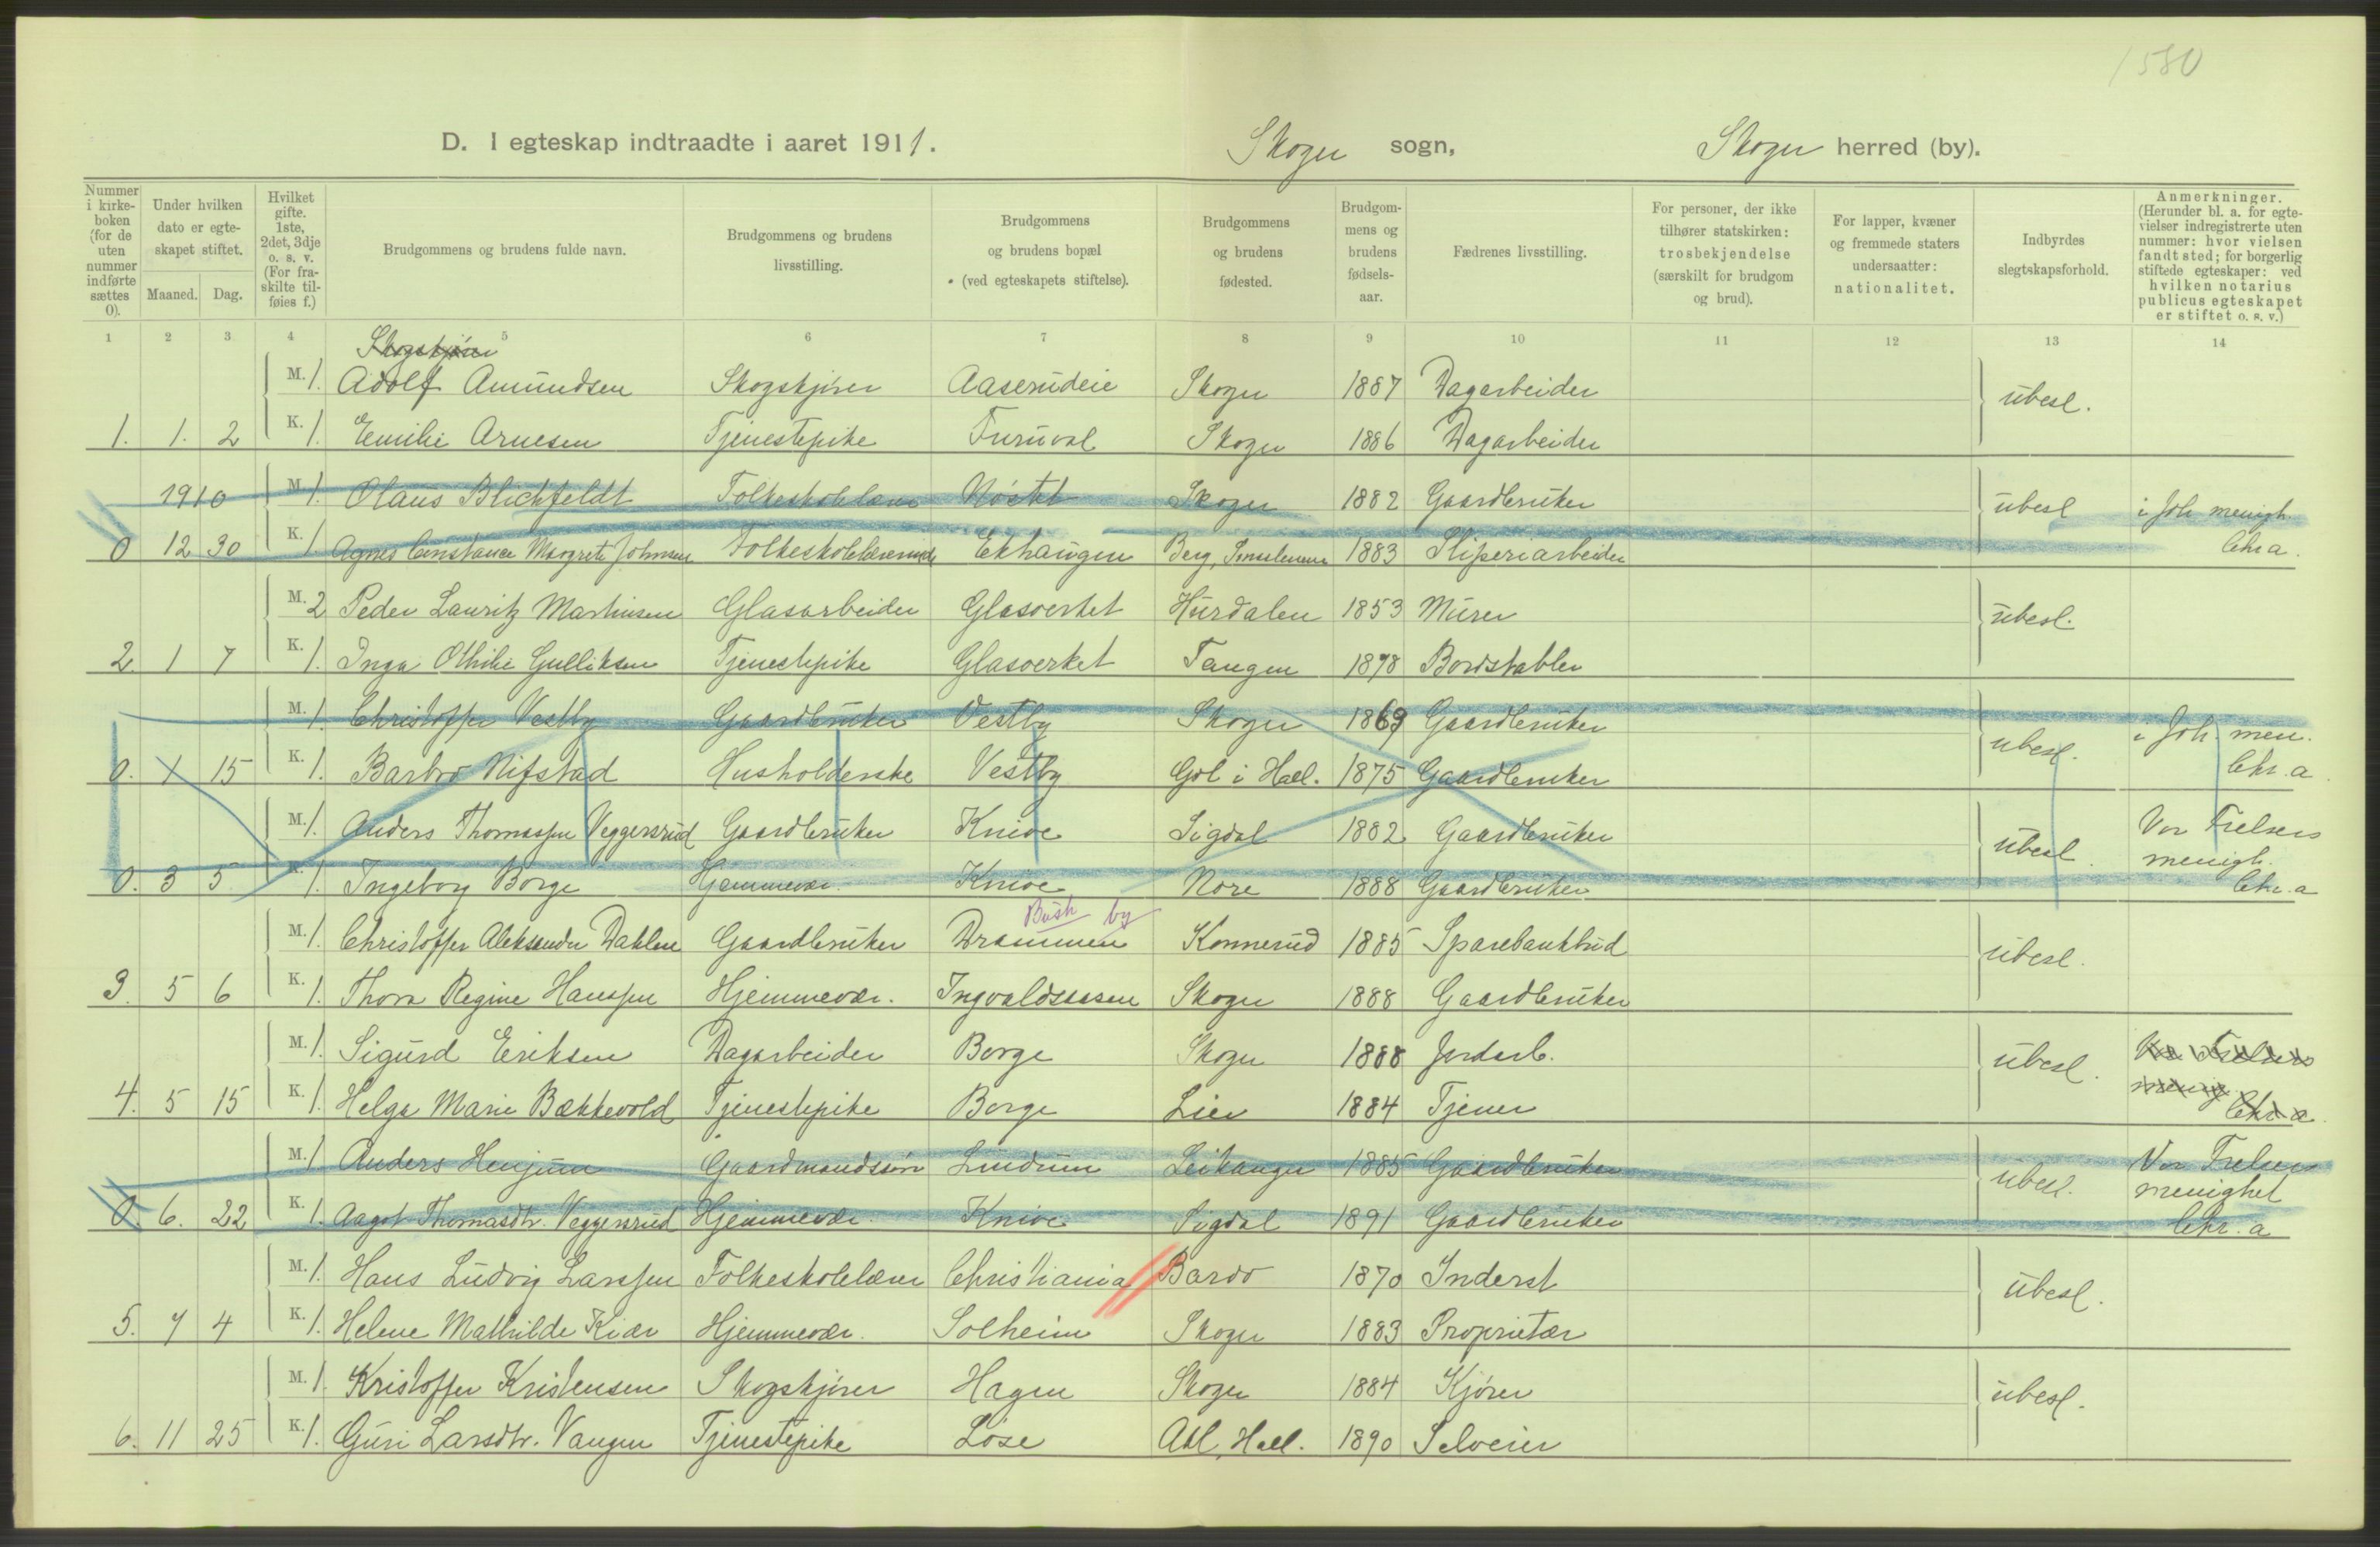 1580
D. I egteskap indtraadte i aaret 1911. Skoger sogn, Skoger herred (by).
Nummer i kirke-boken (for de uten nummer indførte sættes 0). Under hvilken dato er egte-skapet stiftet. Maaned. Dag. Hvilket gifte. 1ste, 2det, 3dje o. s. v. (For fra-skilte til-føies f.) Brudgommens og brudens fulde navn. Brudgommens og brudens livsstilling. Brudgommens og brudens bopæl (ved egteskapets stiftelse). Brudgommens og brudens fødested. Brudgom-mens og brudens fødsels-aar. Fædrenes livsstilling. For personer, der ikke tilhører statskirken: trosbekjendelse (særskilt for brudgom og brud). For lapper, kvæner og fremmede staters undersaatter: nationalitet. Indbyrdes slegtskapsforhold. Anmerkninger. (Herunder bl. a. for egte-vielser indregistrerte uten nummer: hvor vielsen fandt sted; for borgerlig stiftede egteskaper: ved hvilken notarius publicus egteskapet er stiftet o. s. v.)
1 2 3 4 5 6 7 8 9 10 11 12 13 14
Skogskjörer
M. 1. Adolf Amundsen Skogskjörer Aaserudeie Skoger 1887 Dagarbeider ubesl.
1. 1. 2 K. 1. Emilie Arnesen Tjenestepike Furuval Skoger 1886 Dagarbeider
1910 M. 1. Olaus Blichfeldt Folkeskolelærer Nöstet Skoger 1882 Gaardbruker ubesl i Joh menigh.
0 12 30 K. 1. Agnes Constance Margrete Johnsen Folkeskolelærerinde Ekhaugen Berg, Smaalenene 1883 Sliperiarbeider Chr.a.
M. 2 Peder Lauritz Martinsen Glasarbeider Glasverket Hurdalen 1853 Murer ubesl.
2. 1 7 K. 1. Inga Othilie Gulliksen Tjenestepike Glasverket Tangen 1878 Bordstabler
M. 1. Christoffer Vestby Gaardbruker Vestby Skoger 1869 Gaardbruker ubesl. i Joh. men.
0. 1 15 K. 1. Barbro Nifstad Husholderske Vestby Gol i Hall. 1875 Gaardbruker Chr.a.
M. 1. Anders Thomassen Veggersrud Gaardbruker Knive Sigdal 1882 Gaardbruker ubesl. Vor Frelsers menigh.
0. 3 5 K. 1. Ingeborg Borge Hjemmevær. Knive Nore 1888 Gaardbruker Chr.a
Busk by
M. 1. Christoffer Aleksander Dahlen Gaardbruker Drammen Konnerud 1885 Sparebankbud ubesl.
3. 5 6 K. 1. Thora Regine Hanssen Hjemmevær. Ingvaldsaasen Skoger 1888 Gaardbruker
M. 1. Sigurd Eriksen Dagarbeider Berge Skoger 1888 Jordarb. ubesl. Vor Frelsers menig.
4. 5 15 K. 1. Helga Marie Bækkevold Tjenestepike Berge Lier 1884 Tjener Chr.a.
M. 1. Anders Henjum Gaardmandssön Lindum Leikanger 1885 Gaardbruker ubesl. Vor Frelsers menighet
0. 6. 22 K. 1. Aagot Thomasdtr. Veggersrud Hjemmevær. Knive Sigdal 1891 Gaardbruker Chr.a
M. 1. Hans Ludvig Larssen Folkeskolelærer Christiania Bardo 1870 Inderst ubesl.
5. 7 4 K. 1. Helene Mathilde Kiær Hjemmevær. Solheim Skoger 1883 Proprietær
M. 1. Kristoffer Kristensen Skogskjörer Hagen Skoger 1884 Kjörer ubesl.
6. 11 25 K. 1. Guri Larsdtr. Vangen Tjenestepike Löse Aal, Hall. 1890 Selveier